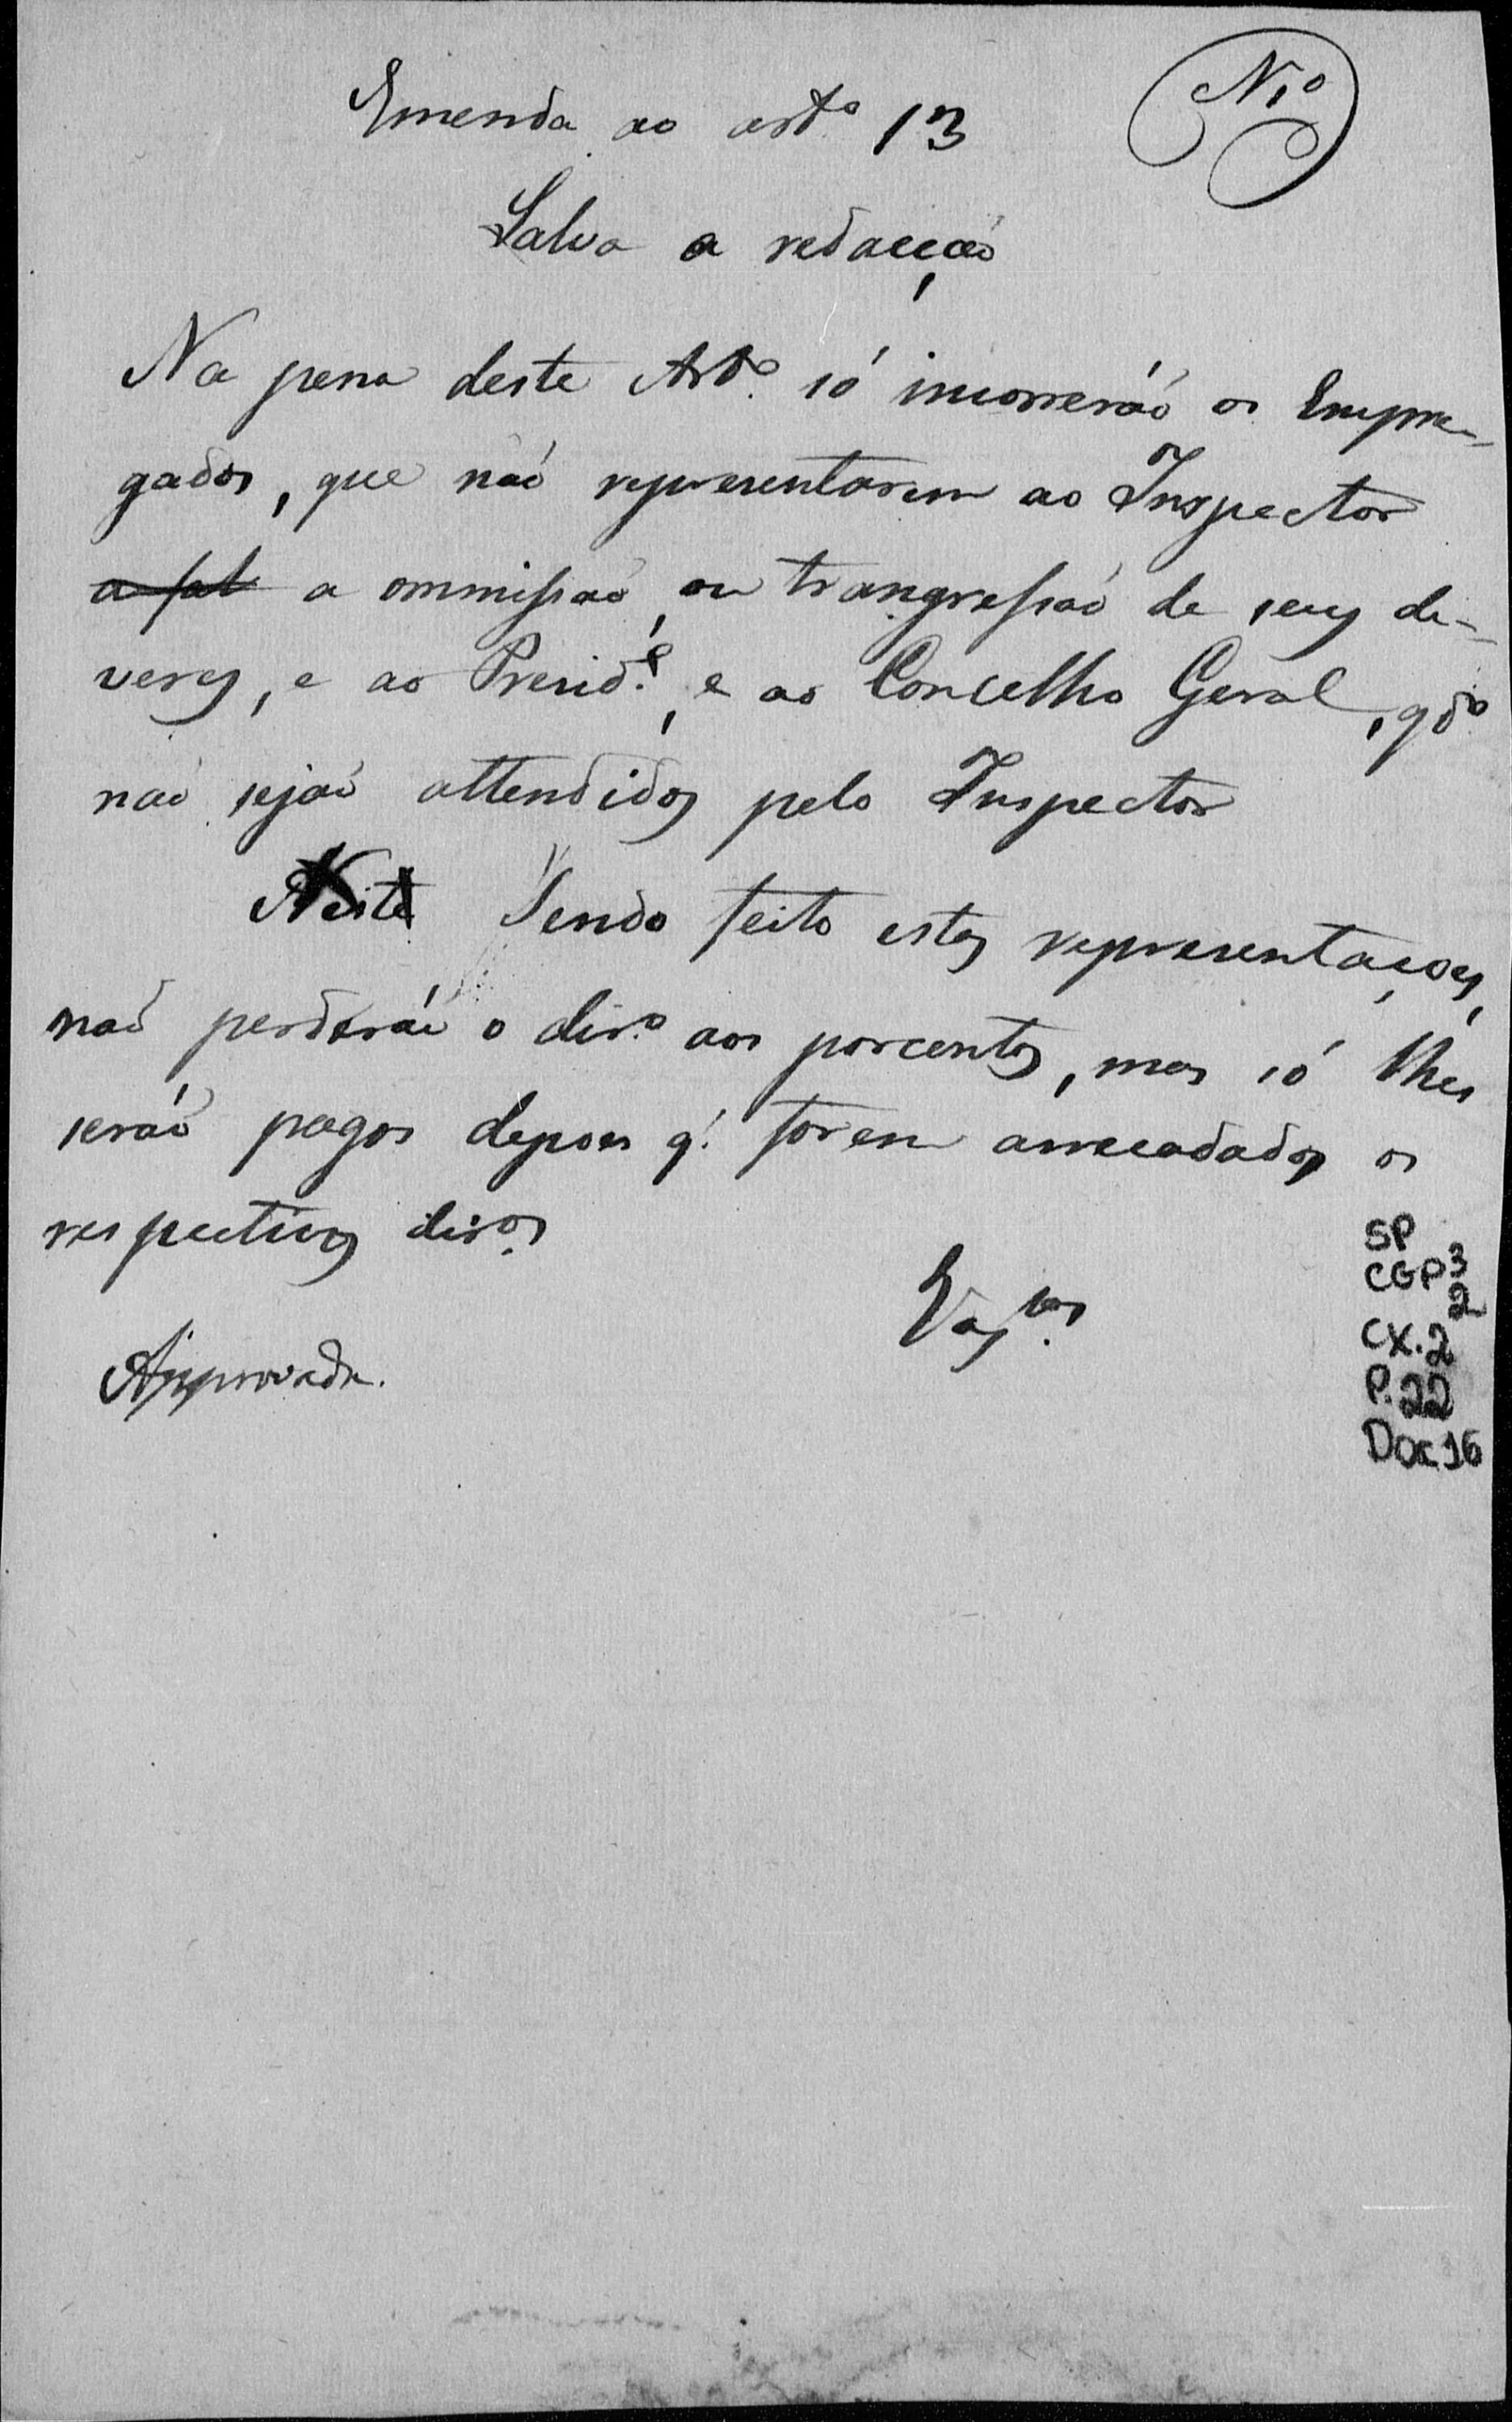 Nº
Emenda ao artº 13
Salva a redacção
Na pena deste Artº. só incorreráõ os Empre-
gados, que naõ representarem ao Inspector
a fal a ommissaõ, ou trangressaõ de seus de-
veres, e ao Presid.e, e ao Concelho Geral, qdo
naõ sejaõ attendidos pelo Inspector
Neste Sendo feito estas representaçoes,
naõ perderáõ o dirº. aos porcentos, mas só lhes
seráõ pagos depois q. forem arrecadados os
respectivos diros.
Approvada.
SP
CGP3
2
CX.2
P.22
Doc 16